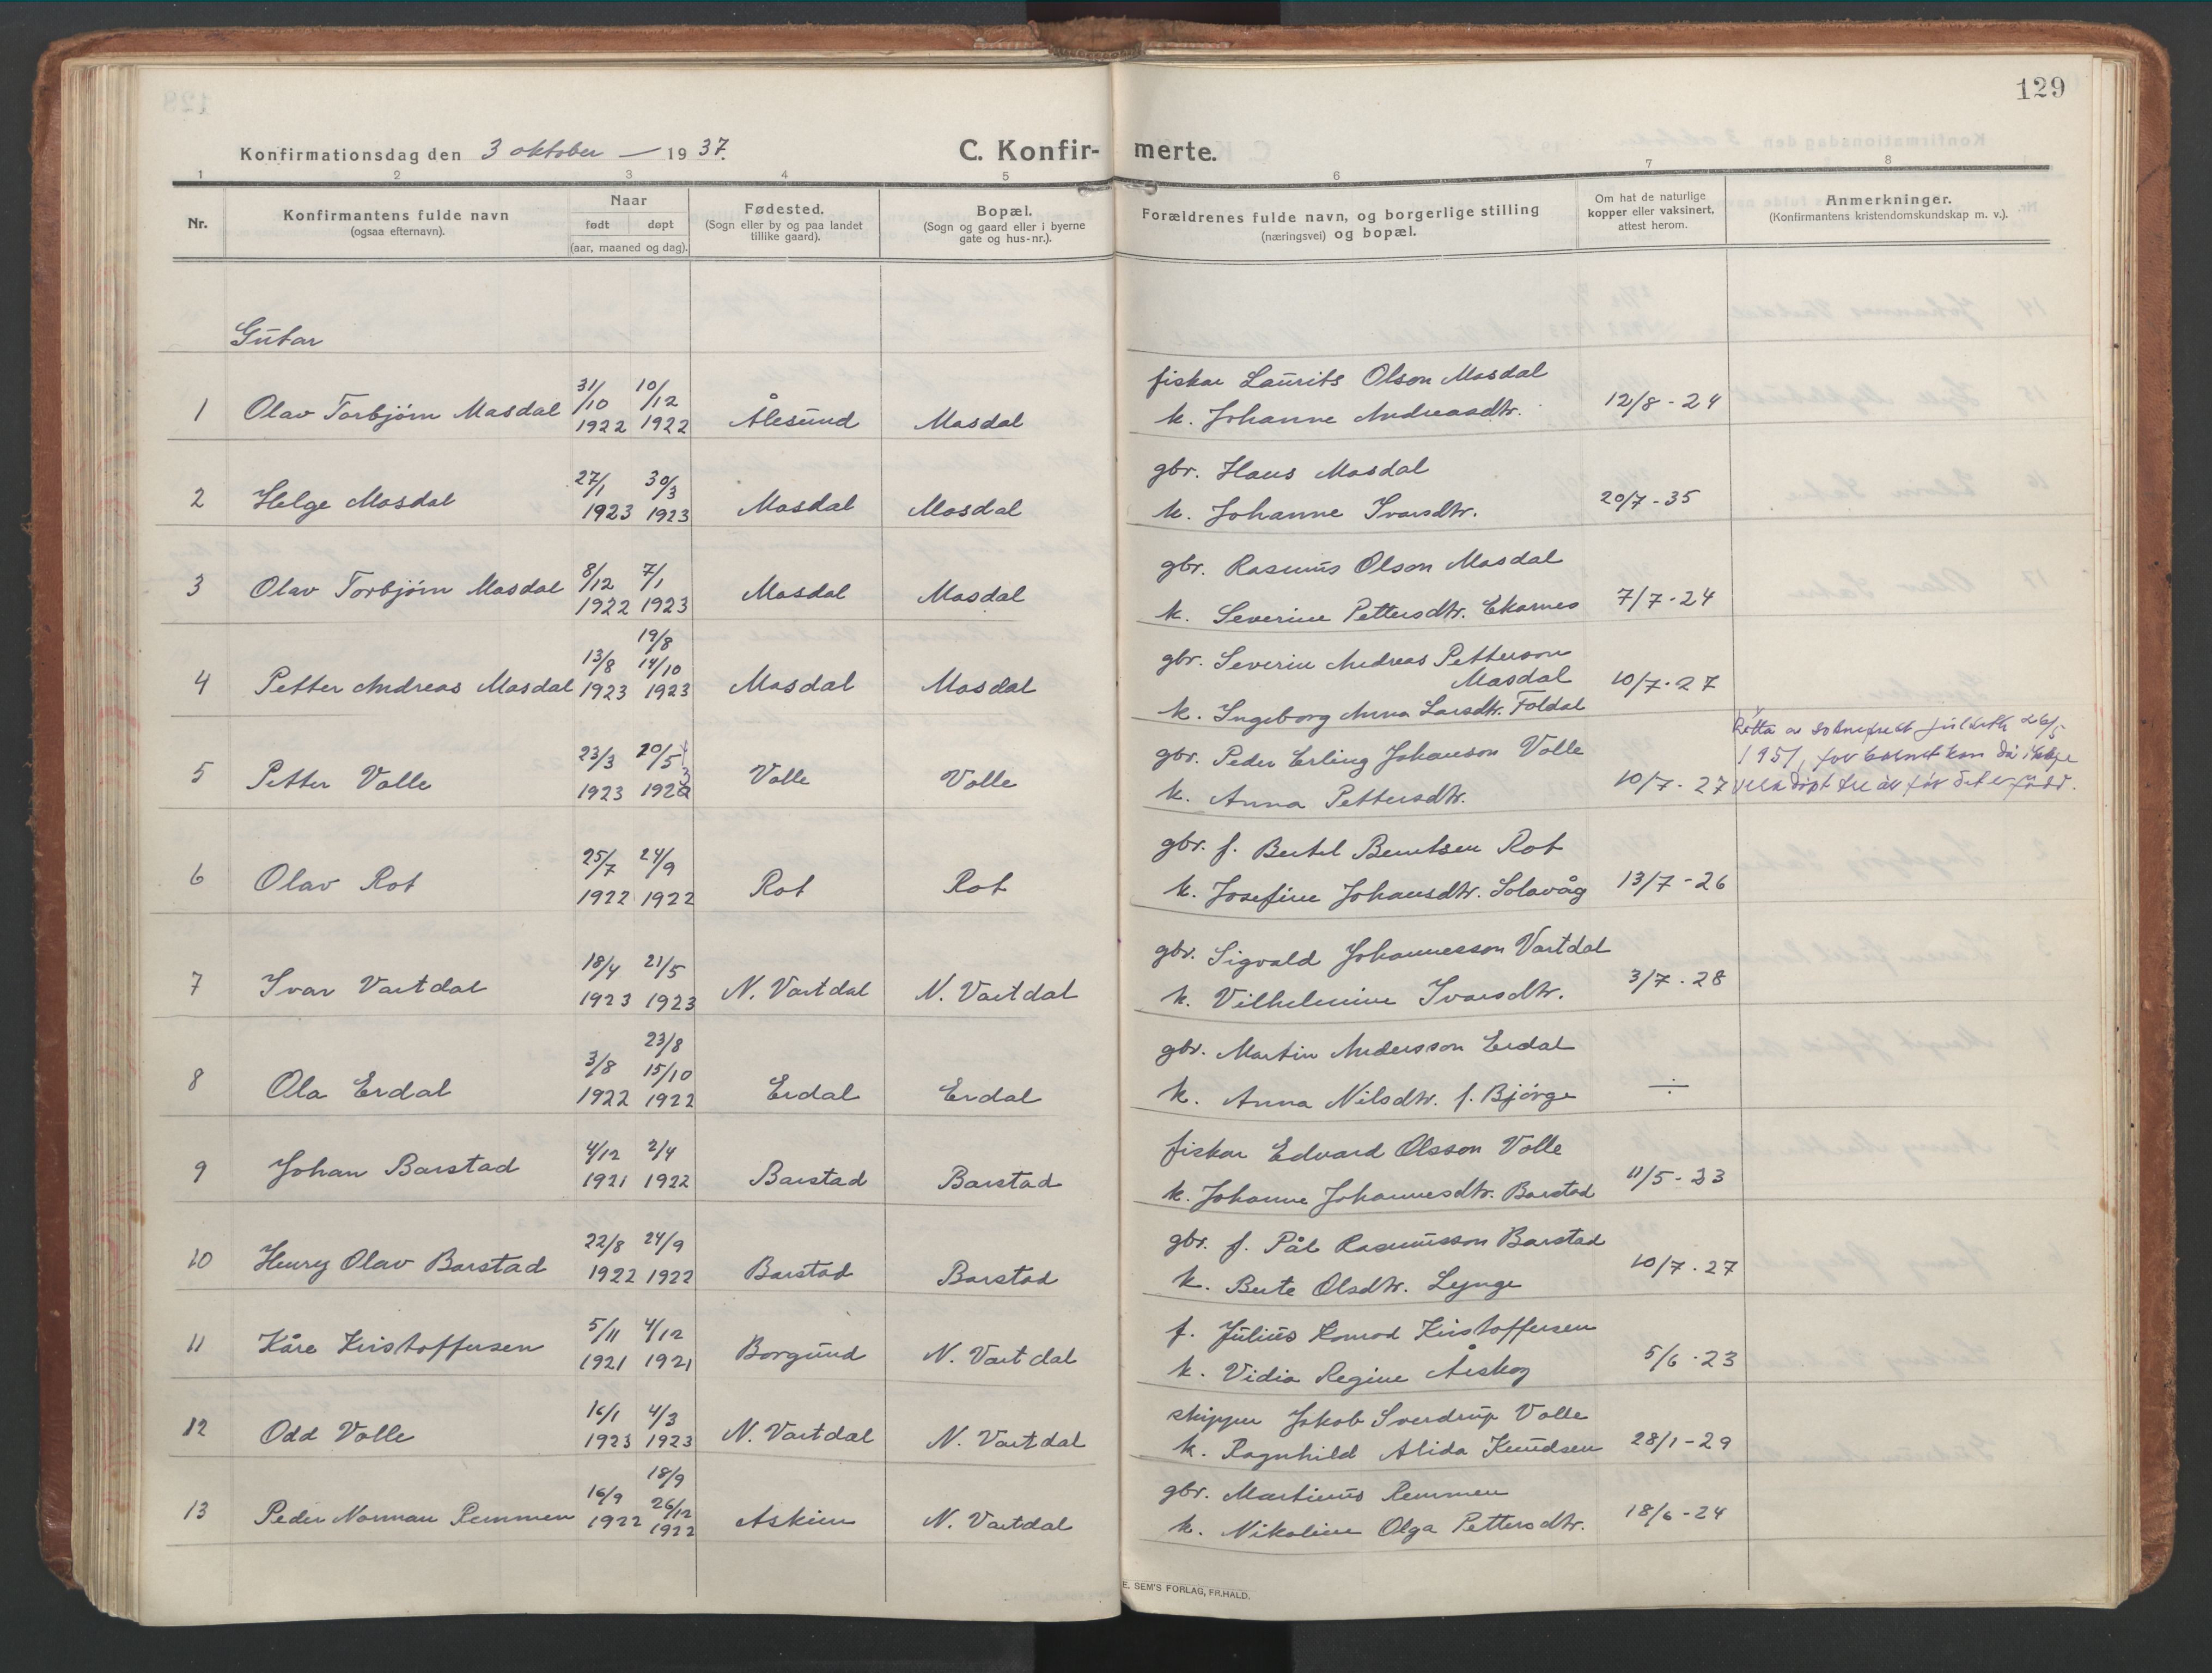 129
Konfirmationsdag den 3 oktober — 1937. C. Konfirmerte.
1 2 3 4 5 6 7 8
Nr. Konfirmantens fulde navn (ogsaa efternavn). Naar født døpt (aar, maaned og dag). Fødested. (Sogn eller by og paa landet tillike gaard). Bopæl. (Sogn og gaard eller i byerne gate og hus-nr.). Forældrenes fulde navn, og borgerlige stilling (næringsvei) og bopæl. Om hat de naturlige kopper eller vaksinert, attest herom. Anmerkninger. (Konfirmantens kristendomskundskap m. v.).
Gutar
1 Olav Torbjørn Masdal 31/10 1922 10/12 1922 Ålesund Masdal fiskar Laurits Olson Masdal
k. Johanne Andreasdtr. 12/8 - 24
2 Helge Masdal 27/1 1923 30/3 1923 Masdal Masdal gbr. Hans Masdal
k. Johanne Ivarsdtr. 20/7 - 35
3 Olav Torbjørn Masdal 8/12 1922 7/1 1923 Masdal Masdal gbr. Rasmus Olson Masdal
k. Severine Pettersdtr. Ekornes 7/7 - 24
4 Petter Andreas Masdal 13/8 1923 19/8 14/10 1923 Masdal Masdal gbr. Severin Andreas Petterson
Masdal
k. Ingeborg Anna Larsdtr. Foldal 10/7 - 27
5 Petter Valle 23/3 1923 20/5 1923 Valle Valle gbr. Peder Erling Johanson Valle
k. Anna Pettersdtr. 10/7 - 27
Retta av sokneprest 26/5
1951, for barnet kan då ikkje
vera døpt tre år før det er född.
6 Olav Rot 25/7 1922 24/9 1922 Rot Rot gbr. f. Bertel Berntsen Rot
k. Josefine Johansdtr. Solavåg 13/7 - 26
7 Ivar Vartdal 18/4 1923 21/5 1923 N. Vartdal N. Vartdal gbr. Sigvald Johannesson Vartdal
k. Vilhelmine Ivarsdtr. 3/7 - 28
8 Ola Erdal 3/8 1922 23/8 15/10 1922 Erdal Erdal gbr. Martin Andersson Erdal
k. Anna Nilsdtr. f. Bjørge ÷
9 Johan Barstad 4/12 1921 2/4 1922 Barstad Barstad fiskar Edvard Olsson Valle
k. Johanne Johannesdtr. Barstad 11/5 - 23
10 Henry Olav Barstad 22/8 1922 24/9 1922 Barstad Barstad gbr. f. Pål Rasmusson Barstad
k. Berte Olsdtr. Lynge 10/7 - 27
11 Kåre Kristoffersen 5/11 1921 4/12 1921 Borgund N. Vartdal f. Julius Konrad Kristoffersen
k. Vidia Regine Årskog 5/6 - 23
12 Odd Valle 16/1 1923 4/3 1923 N. Vartdal N. Vartdal skipper Jakob Sverdrup Valle
k. Ragnhild Alida Knudsen 28/1 - 29
13 Peder Norman Remmen 16/9 1922 18/9 26/12 1922 Askim N. Vartdal gbr. Martinus Remmen
k. Nikoline Olga Pettersdtr. 18/6 - 24
E. SEM'S FORLAG, FR.HALD.